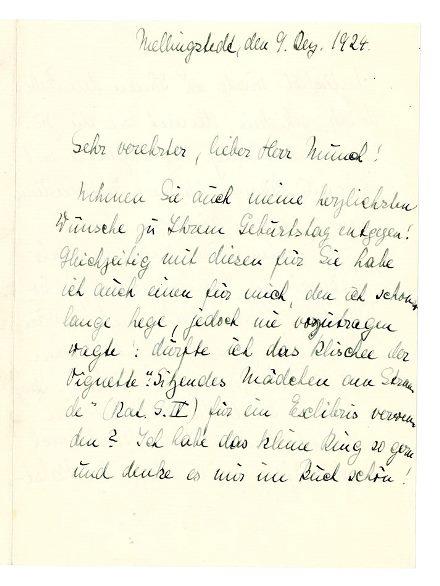 Mellingstedt, den 9. Dez. 1924.
Sehr verehrter, lieber Herr Munch!
Nehmen Sie auch meine herzlichsten
Wünsche zu Ihrem Geburtstag entgegen!
Gleichzeitig mit diesen für Sie habe
ich auch einen für mich, den ich schon
lange hege, jedoch nie vorzutragen
wagte: dürfte ich das Klischee der
Vignette "Sitzendes Mädchen am Stran-
de" (Kat. S. IV) für ein Exlibris verwen-
den? Ich habe das kleine Ding so gern
und denke es mir im Buch schön!